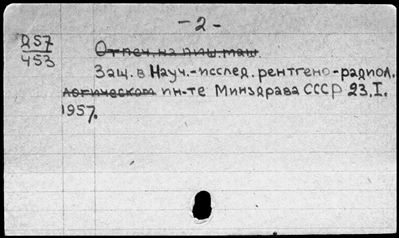 - 2 -
Д57
453
Отпеч. на пиш. маш.
Защ. в Науч.-исслед. рентгено-радиол.
логическом ин-те Минздрава СССР 23.I.
1957.